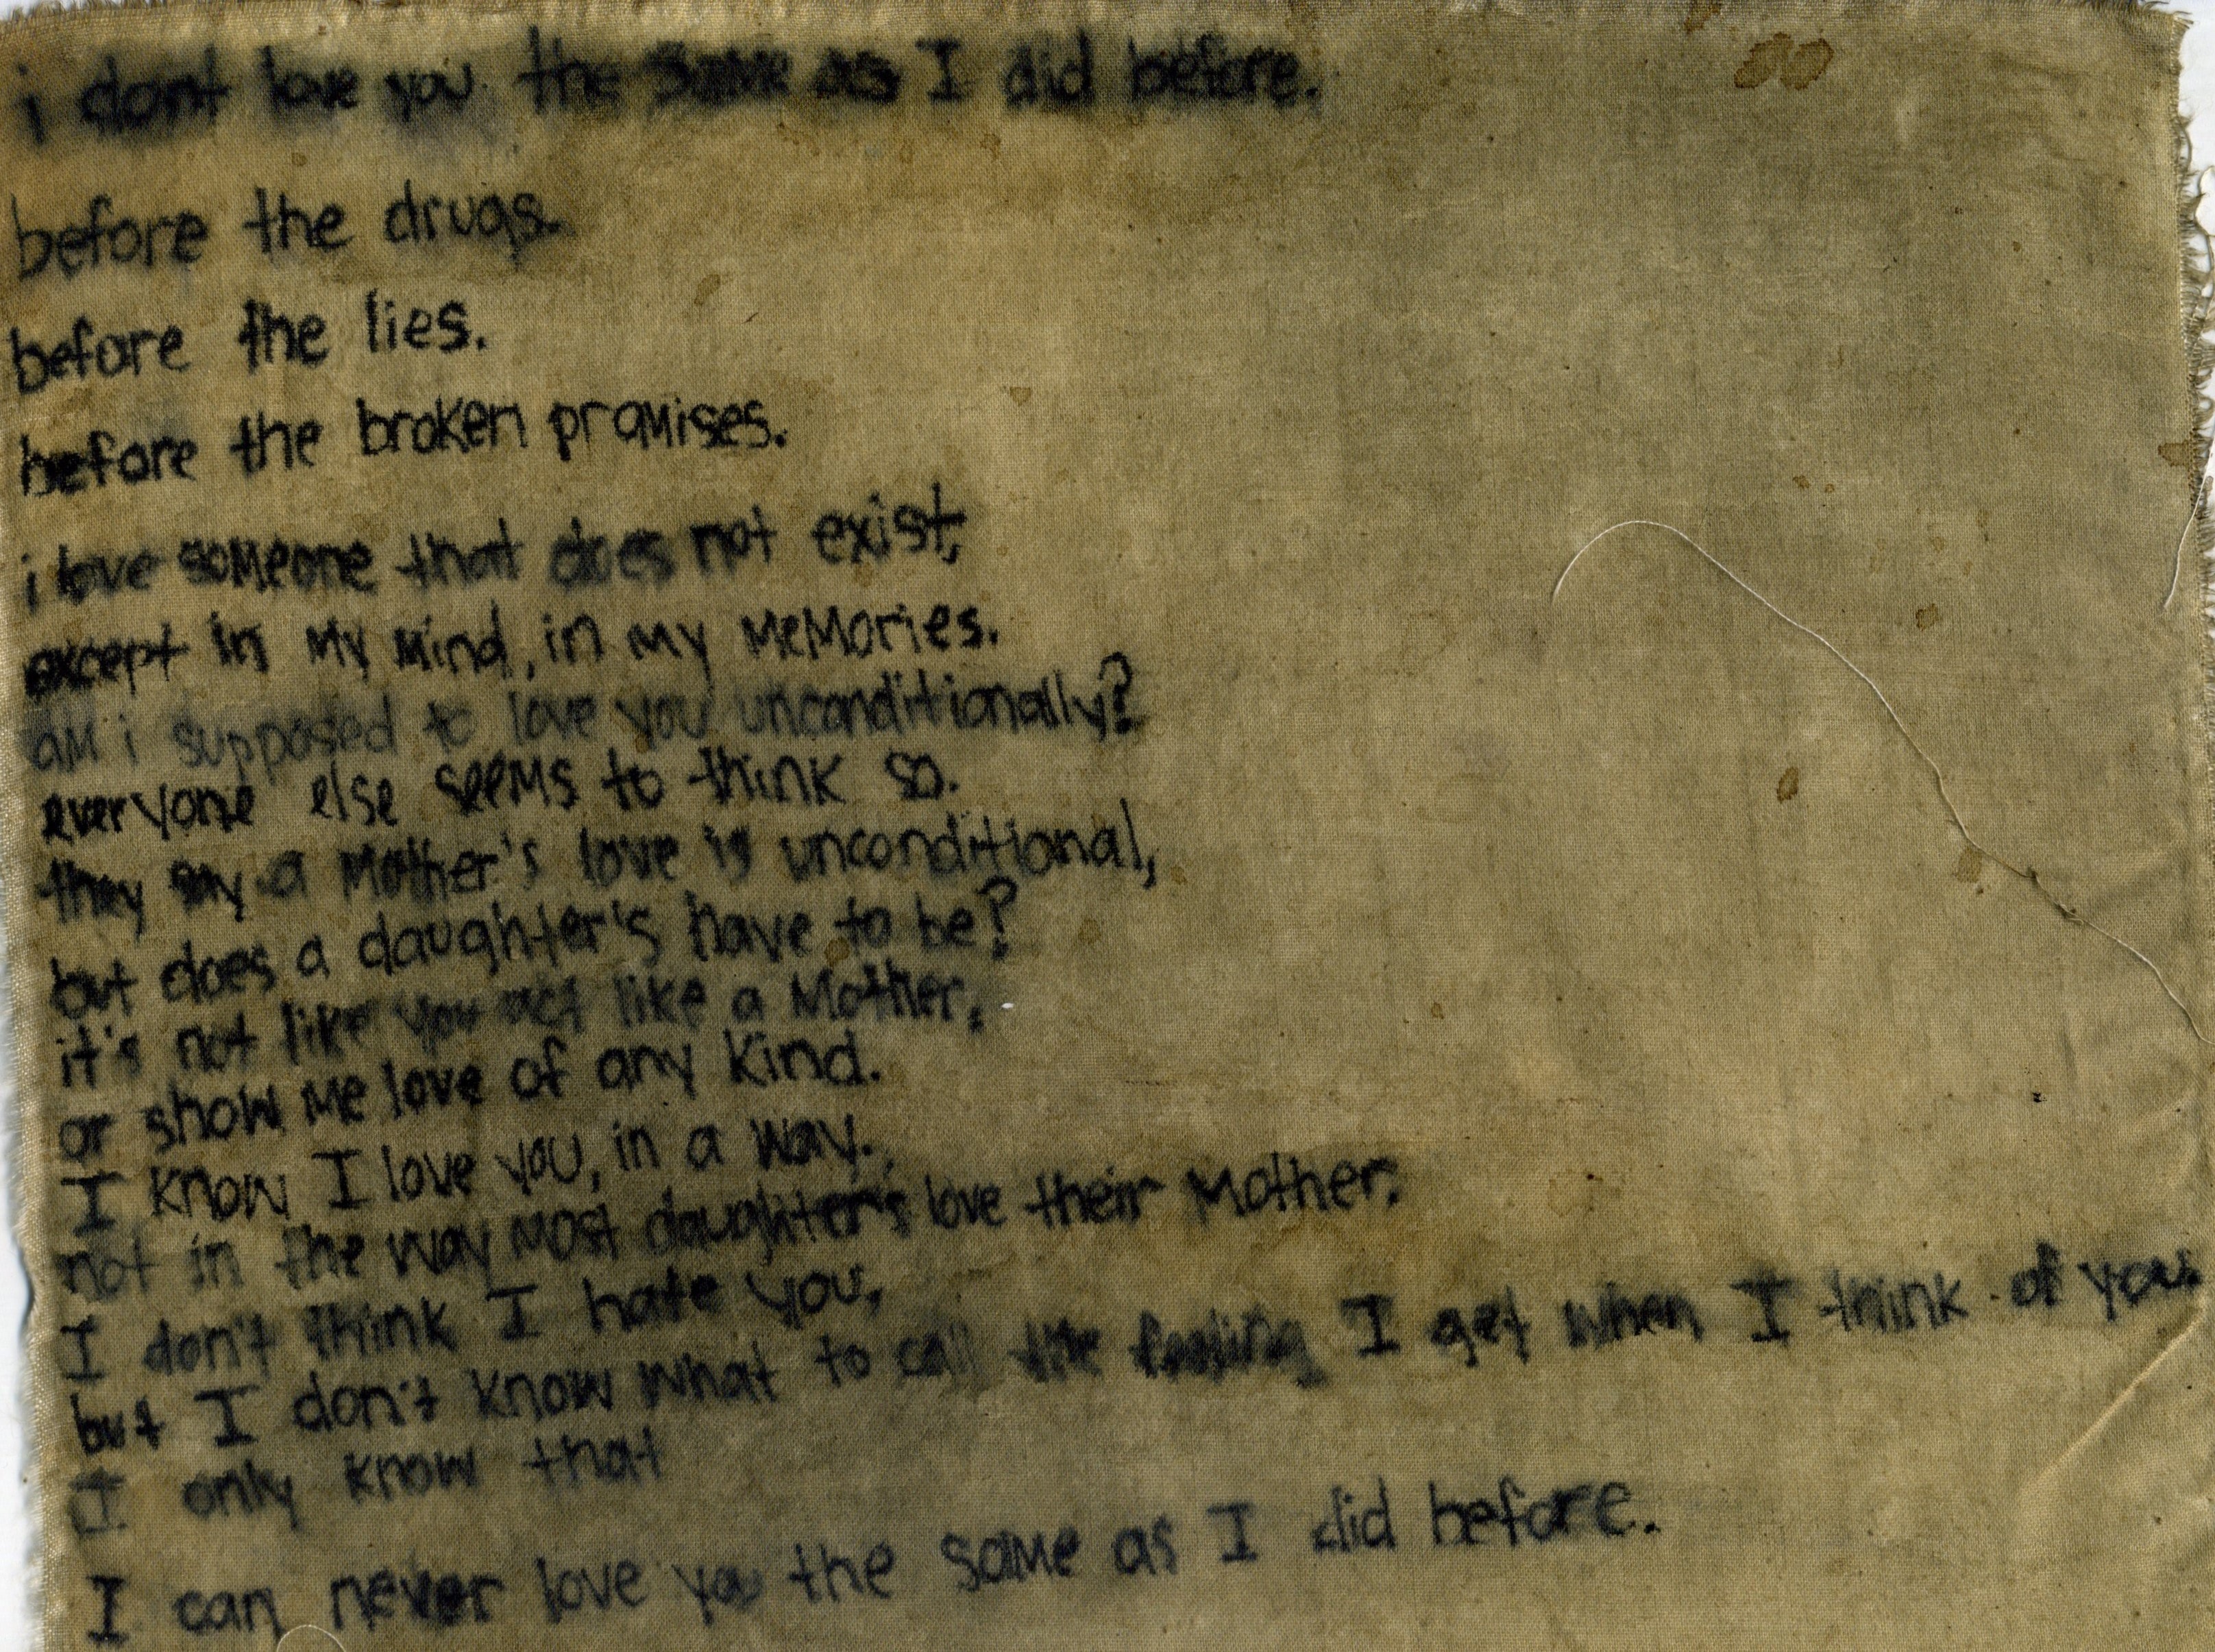 i dont love you the same as I did before.
before the drugs.
before the lies.
before the broken promises.
i love someone that does not exist,
except in my mind, in my memories.
am i supposed to love you unconditionally?
everyone else seems to think so.
they say a mother's love is unconditional,
but does a daughter's have to be?
it's not like you act like a mother,
or show me love of any kind.
I know I love you, in a way.
not in the way most daughters love their mother.
I don't think I hate you,
but I don't know what to call the feeling I get when I think of you.
I only know that
I can never love you the same as I did before.